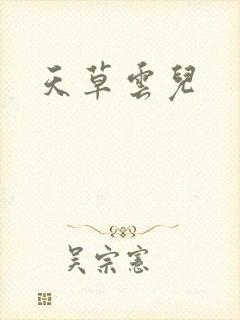 天草雲兒
吳宗憲